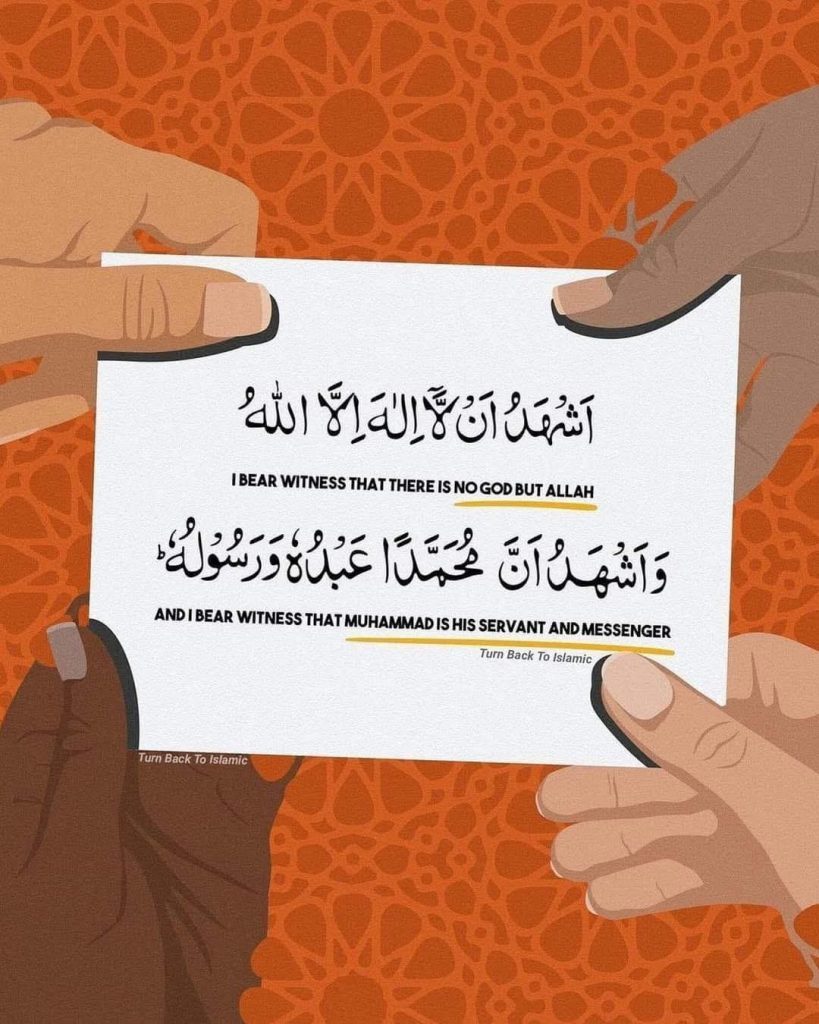 اَشْهَدُ اَنْ لَّآ اِلٰهَ اِلَّا اللهُ
I BEAR WITNESS THAT THERE IS NO GOD BUT ALLAH
وَاَشْهَدُ اَنَّ مُحَمَّدًا عَبْدُهٗ وَرَسُوْلُهٗؕ
AND I BEAR WITNESS THAT MUHAMMAD IS HIS SERVANT AND MESSENGER
Turn Back To Islamic
Turn Back To Islamic